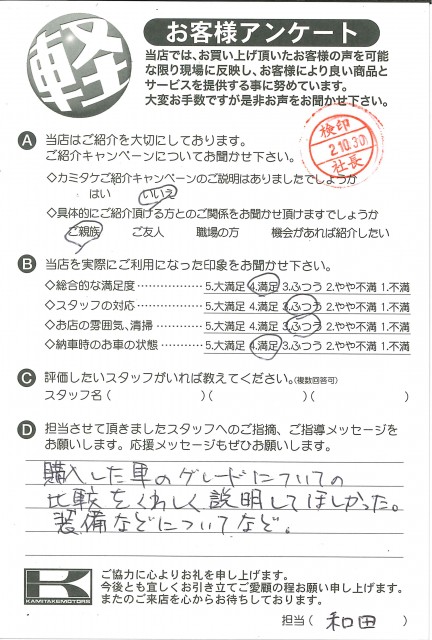 軽
お客様アンケート
当店では、お買い上げ頂いたお客様の声を可能
な限り現場に反映し、お客様により良い商品と
サービスを提供する事に努めています。
大変お手数ですが是非お声をお聞かせ下さい。
検印
2.10.30
社長
A 当店はご紹介を大切にしております。
ご紹介キャンペーンについてお聞かせ下さい。
◇カミタケご紹介キャンペーンのご説明はありましたでしょうか
はい いいえ
◇具体的にご紹介頂ける方とのご関係をお聞かせ頂けますでしょうか
ご親族 ご友人 職場の方 機会があれば紹介したい
B 当店を実際にご利用になった印象をお聞かせ下さい。
◇総合的な満足度 5.大満足 4.満足 3.ふつう 2.やや不満 1.不満
◇スタッフの対応 5.大満足 4.満足 3.ふつう 2.やや不満 1.不満
◇お店の雰囲気、清掃 5.大満足 4.満足 3.ふつう 2.やや不満 1.不満
◇納車時のお車の状態 5.大満足 4.満足 3.ふつう 2.やや不満 1.不満
C 評価したいスタッフがいれば教えてください。(複数回答可)
スタッフ名( )( )( )
D 担当させて頂きましたスタッフへのご指摘、ご指導メッセージを
お願いします。応援メッセージもぜひお願いします。
購入した車のグレードについての
比較をくわしく説明してほしかった。
装備などについてなど。
K
KAMITAKEMOTORS
ご協力に心よりお礼を申し上げます。
今後とも宜しくお引き立てご愛顧の程お願い申し上げます。
またのご来店を心からお待ちしております。
担当( 和田 )